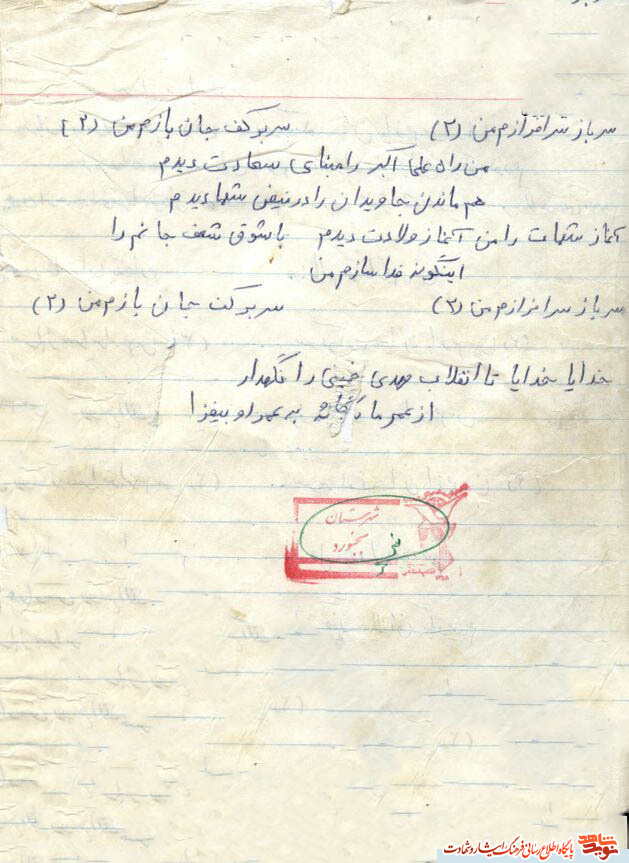 سرباز سرافرازم من (۲) سر بر کف جان بازم من (۲)
من راه علی اکبر را مبنای سعادت دیدم
هم ماندن جاویدان را در فیض شما دیدم
آغاز شهادت را من آغاز ولادت دیدم با شوق شعف جانم را
اینگونه فدا سازم من
سرباز سرافرازم من (۲) سر بر کف جان بازم من (۲)
خدایا خدایا تا انقلاب مهدی خمینی را نگهدار
از عمر ما به عمر او بیفزا
شهرستان
بجنورد
نوید شاهد
پایگاه اطلاع رسانی فرهنگ ایثار و شهادت